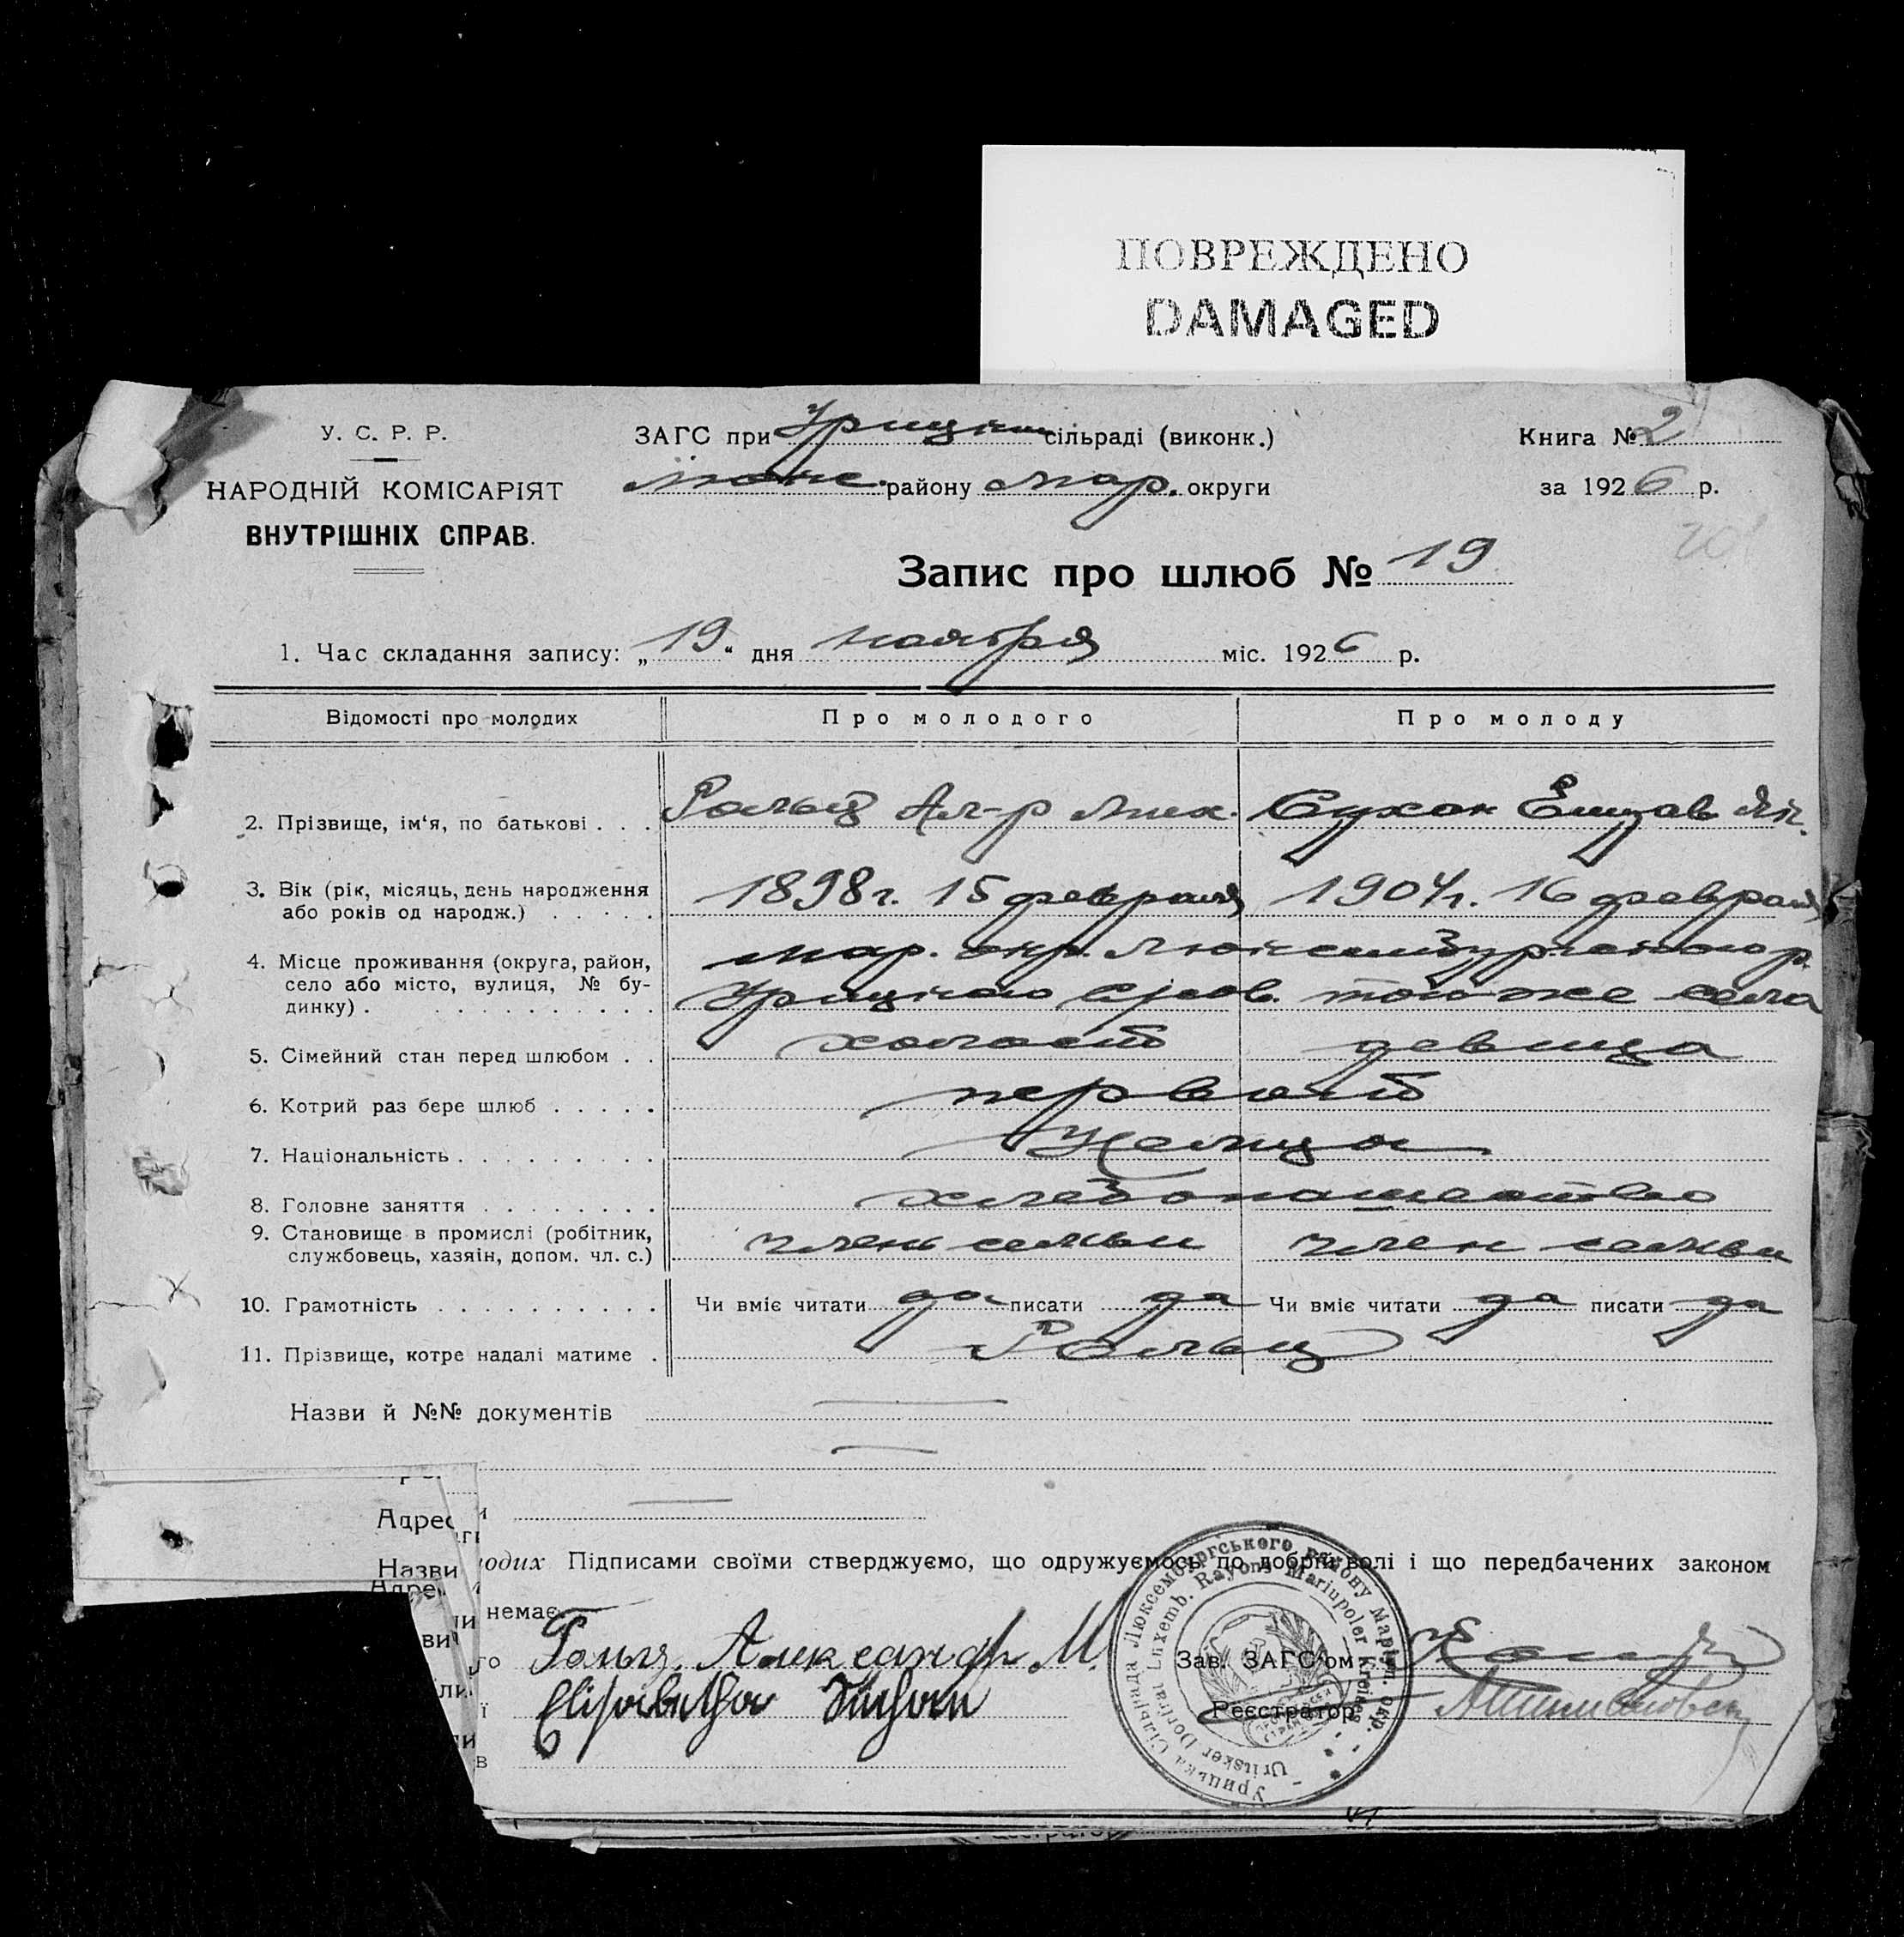 ПОВРЕЖДЕНО
DAMAGED
У. С. Р. Р.
НАРОДНІЙ КОМІСАРІЯТ
ВНУТРІШНІХ СПРАВ.
ЗАГС при Урицком сільраді (виконк.)
Люкс. району Мар. округи
Книга № 2
за 1926 р.
Запис про шлюб № 19
1. Час складання запису: „19“ дня ноября міс. 1926 р.
Відомості про молодих Про молодого Про молоду
2. Прізвище, ім‘я, по батькові . . . Гольц Ал-р Мих. Сухан Елизав Як.
3. Вік (рік, місяць, день народження
або років од народж.) . . . . . 1898г. 15 февраля 1904г. 16 февраля
4. Місце проживання (округа, район, Мар. окр. Люксембургского р.
село або місто, вулиця, № бу- Урицкого с/сов. того-же села
динку) . . . . . . . . . . .
5. Сімейний стан перед шлюбом . . холост девица
6. Котрий раз бере шлюб . . . . . первый
7. Національність . . . . . . . . . Немцы
8. Головне заняття . . . . . . . . хлебопашество
9. Становище в промислі (робітник,
службовець, хазяін, допом. чл. с.) член семьи член семьи
10. Грамотність . . . . . . . . . . Чи вміє читати да писати да Чи вміє читати да писати да
11. Прізвище, котре надалі матиме . Гольц
Назви й №№ документів
Адрес
Назви
Адре
одих Підписами своїми стверджуємо, що одружуємось по добрій волі і що передбачених законом
немає.
го Гольц. Александр М. Зав. ЗАГС'ом
ї Elisabetha Suchan Реєстратор
в
Урицька Сільрада Люксембургського району Маріюп. окр.
Uritsker Dorfrat Luxemb. Rayons Mariupoler Kreises